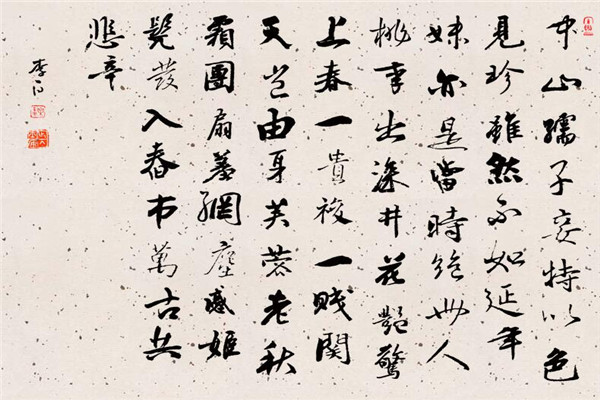 中山孺子妾特以色
見珍雖然不如延年
妹亦是當時絶世人
桃李出深井花艷驚
上春一貴複一賤關
天豈由身芙蓉老秋
霜團扇羞網塵戚姬
髡發入舂市萬古共
悲辛
李白